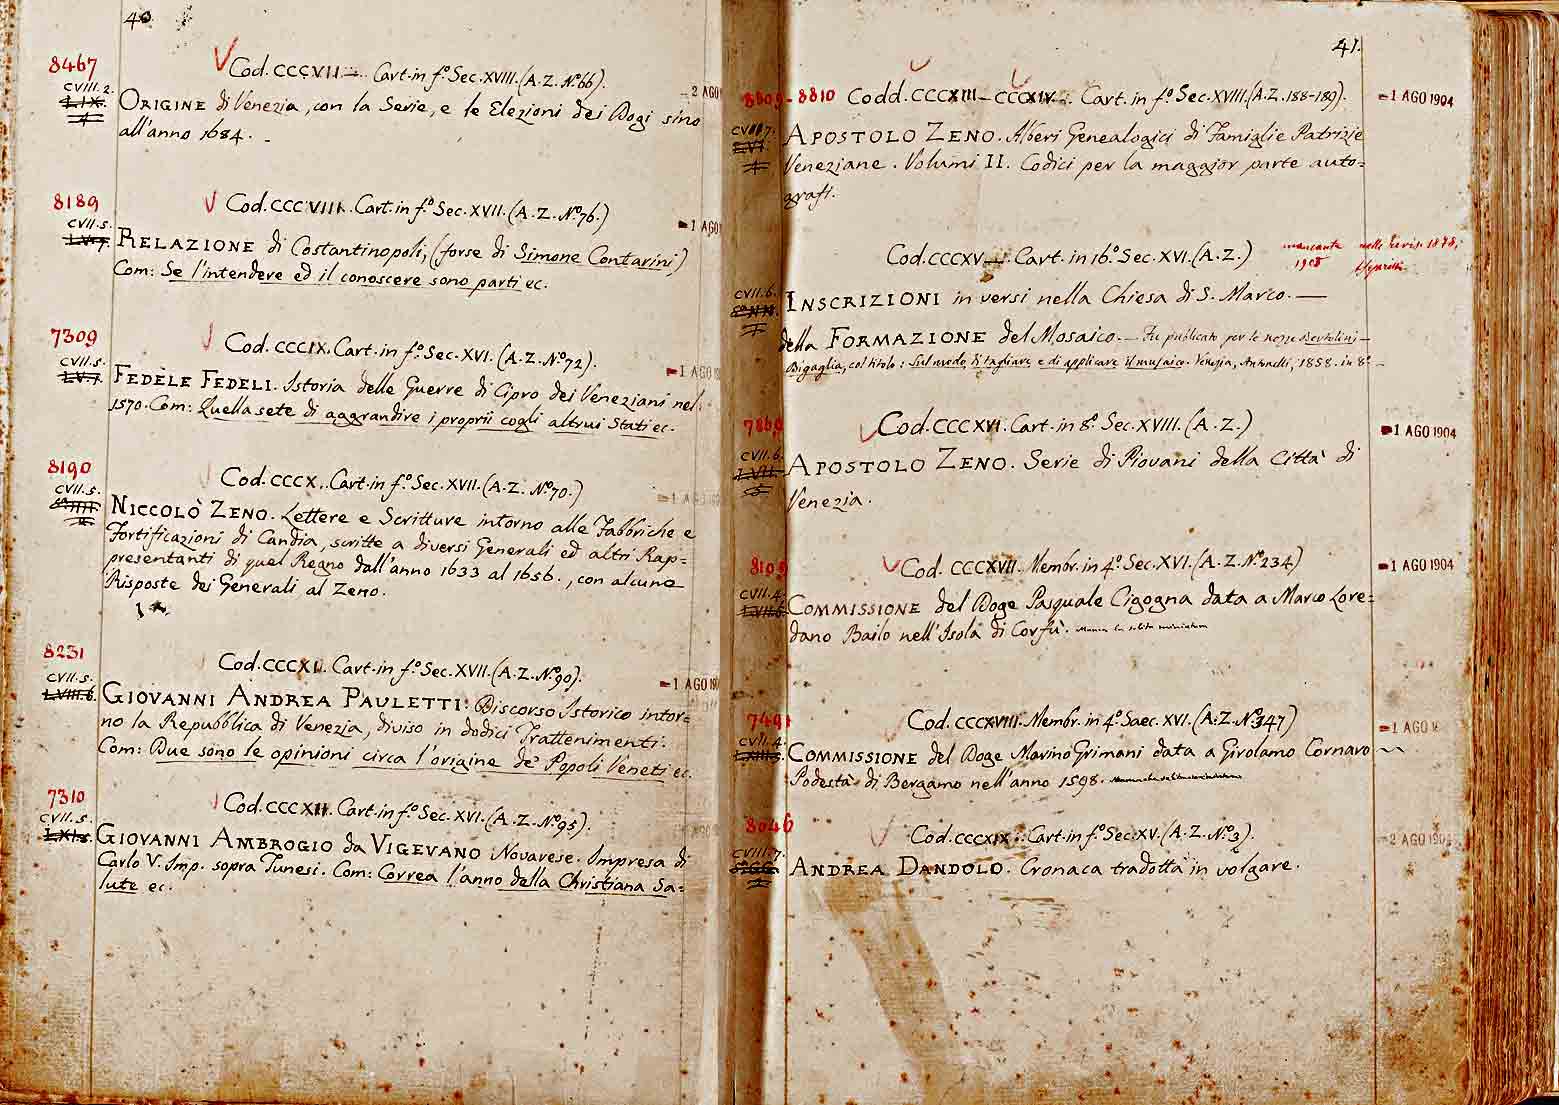 40
8467
Cod. CCCVII. Cart. in f.º Sec. XVIII. (A. Z. Nº. 66).
CVIII. 2.
2 AGO
ORIGINE di Venezia, con la Serie, e le Elezioni dei Dogi sino
all'anno 1684.
8189
Cod. CCCVIII. Cart. in f.º Sec. XVII. (A. Z. Nº. 76.)
CVII. 5.
1 AGO
RELAZIONE di Costantinopoli, (forse di Simone Contarini)
Com: Se l'intendere ed il conoscere sono parti ec.
7309
Cod. CCCIX. Cart. in f.º Sec. XVI. (A. Z. Nº. 72).
CVII. 5.
LV. 7.
1 AGO
FEDELE FEDELI. Istoria delle Guerre di Cipro dei Veneziani nel
1570. Com: Quella sete di aggrandire i proprii cogli altrui Stati ec.
8190
Cod. CCCX. Cart. in f.º Sec. XVII. (A. Z. Nº. 70.)
CVII. 5.
1 AGO
NICCOLÒ ZENO. Lettere e Scritture intorno alle Fabbriche e
Fortificazioni di Candia, scritte a diversi Generali ed altri Rap=
presentanti di quel Regno dall'anno 1633 al 1656., con alcune
Risposte dei Generali al Zeno.
8231
Cod. CCCXI. Cart. in f.º Sec. XVII. (A. Z. Nº. 90).
CVII. 5.
LVIII. 6.
1 AGO 190
GIOVANNI ANDREA PAULETTI. Discorso Istorico intor=
no la Repubblica di Venezia, diviso in dodici Trattenimenti.
Com: Due sono le opinioni circa l'origine de' Popoli Veneti ec.
7310
Cod. CCCXII. Cart. in f.º Sec. XVI. (A. Z. Nº. 95).
CVII. 5.
GIOVANNI AMBROGIO da VIGEVANO Novarese. Impresa di
Carlo V. Imp. sopra Tunesi. Com: Correa l'anno della Christiana Sa=
lute ec.
41.
8809 - 8810 Codd. CCCXIII - CCCXIV. Cart. in f.º Sec. XVIII. (A. Z. 188-189).
1 AGO 1904
APOSTOLO ZENO. Alberi Genealogici di Famiglie Patrizie
Veneziane. Volumi II. Codici per la maggior parte auto=
grafi.
Cod. CCCXV. Cart. in 16.º Sec. XVI. (A. Z.)
mancante nella Revis. 1878,
1905
CVII. 6.
INSCRIZIONI in versi nella Chiesa di S. Marco. —
della FORMAZIONE del Mosaico. — Fu pubblicato per le nozze Bertolini -
Bigaglia, col titolo: Sul modo di tagliare e di applicare il musaico. Venezia, Antonelli, 1858. in 8.º
7869
Cod. CCCXVI. Cart. in 8.º Sec. XVIII. (A. Z.)
1 AGO 1904
CVII. 6.
APOSTOLO ZENO. Serie di Piovani della Città di
Venezia.
Cod. CCCXVII. Membr. in 4.º Sec. XVI. (A. Z. Nº. 234)
1 AGO 1904
CVII. 4.
COMMISSIONE del Doge Pasquale Cigogna data a Marco Lore=
dano Bailo nell'Isola di Corfù. Manca la solita miniatura
Cod. CCCXVIII. Membr. in 4.º Saec. XVI. (A. Z. Nº. 347)
1 AGO
CVII. 4.
COMMISSIONE del Doge Marino Grimani data a Girolamo Cornaro
Podestà di Bergamo nell'anno 1598.
8046
Cod. CCCXIX. Cart. in f.º Sec. XV. (A. Z. Nº. 3).
2 AGO 190
CVIII. 7.
ANDREA DANDOLO. Cronaca tradotta in volgare.